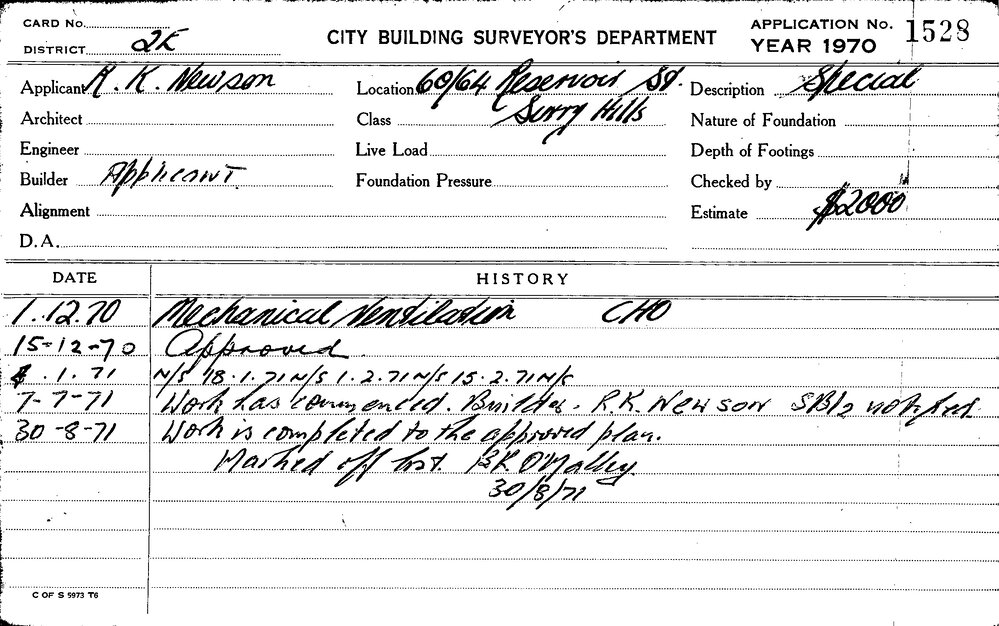 CARD No.
DISTRICT 2E
CITY BUILDING SURVEYOR'S DEPARTMENT
APPLICATION No. 1528
YEAR 1970
Applicant R. K. Newson
Location 60/64 Reservoir St.
Description Special
Architect
Class Surry Hills
Nature of Foundation
Engineer
Live Load
Depth of Footings
Builder Applicant
Foundation Pressure
Checked by
Alignment
Estimate $2000
D.A.
DATE HISTORY
1.12.70 Mechanical Ventilation CHO
15-12-70 Approved
4.1.71 N/S 18.1.71 N/S 1.2.71 N/S 15.2.71 N/S
7-7-71 Work has commenced. Builder - R.K. Newson
30-8-71 Work is completed to the approved plan.
Marked off list. B.K. O'Malley
30/8/71
C OF S 5973 T6